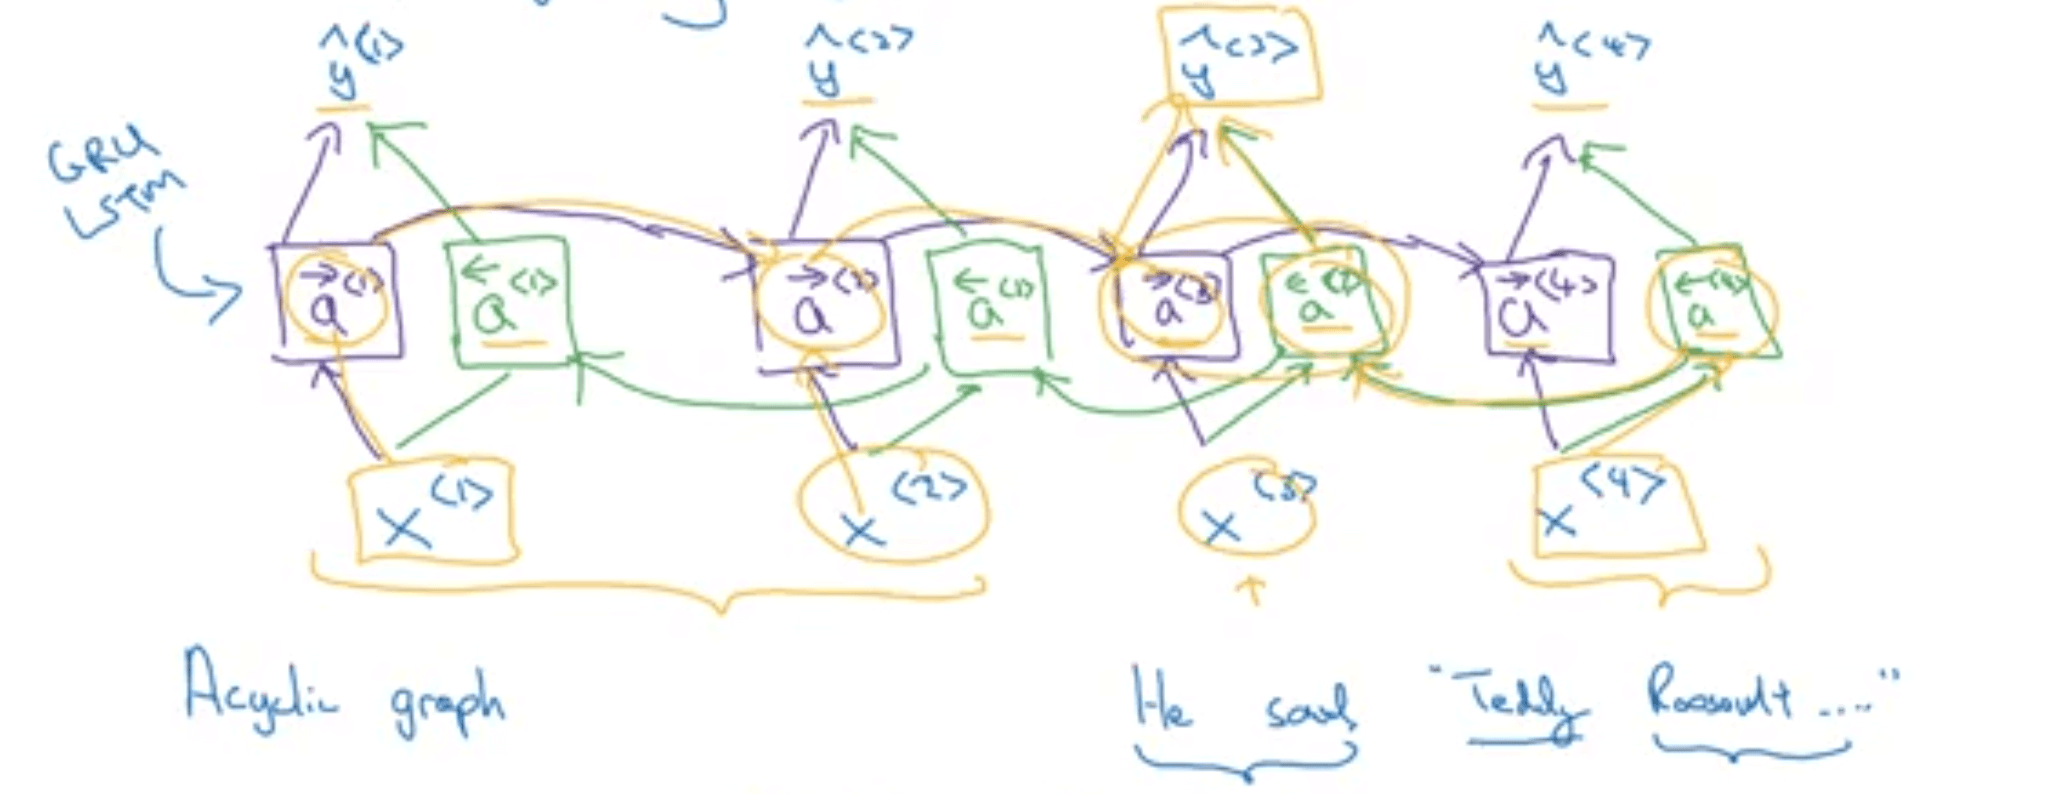 ŷ<1> ŷ<2> ŷ<3> ŷ<4>
GRU
LSTM
→a<1> ←a<1> →a<2> ←a<2> →a<3> ←a<3> →a<4> ←a<4>
x<1> x<2> x<3> x<4>
Acyclic graph
He said, "Teddy Roosevelt...."